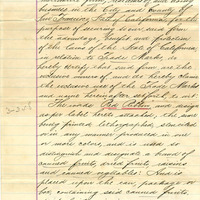 business in the City and County of
San Francisco State of California for the
purpose of securing to our said firm
the advantage, benefit and protection
of the laws of the State of California
in relation to Trade Marks, do
hereby certify that said firm is the
exclusive owner of and do hereby claim
the exclusive use of the Trade Marks
and name hereinafter set forth to wit
The words Red Ribbon and design
paper label hereto attached, the same
being printed lithographed, stenciled
in any manner produced in one
or more colors, and is used to
distinguish and designate a brand of
canned fruits, dried fruits,
and canned vegetables. And is
placed upon the can, package or
box containing said canned fruits,